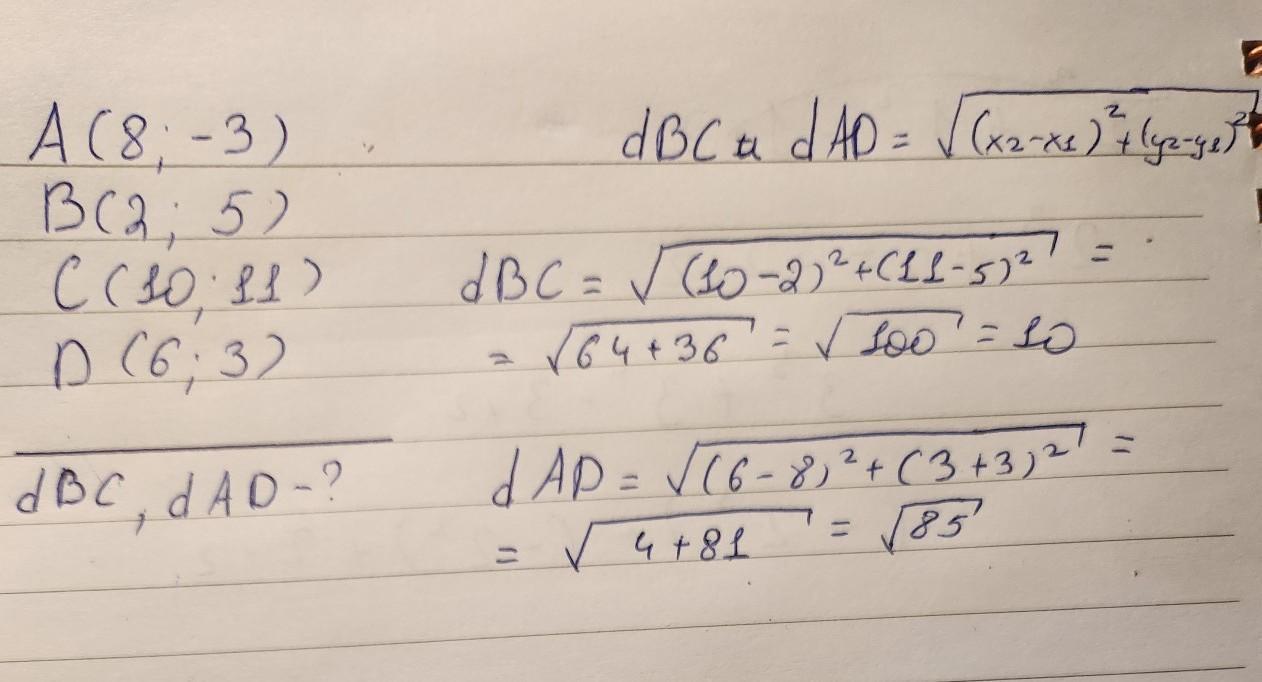 A(8; -3)
B(2; 5)
C(10; 11)
D(6; 3)
dBC, dAD - ?
dBC и dAD = √(x2-x1)²+(y2-y1)²
dBC = √(10-2)²+(11-5)² =
= √64+36 = √100 = 10
dAD = √(6-8)²+(3+3)² =
= √4+81 = √85